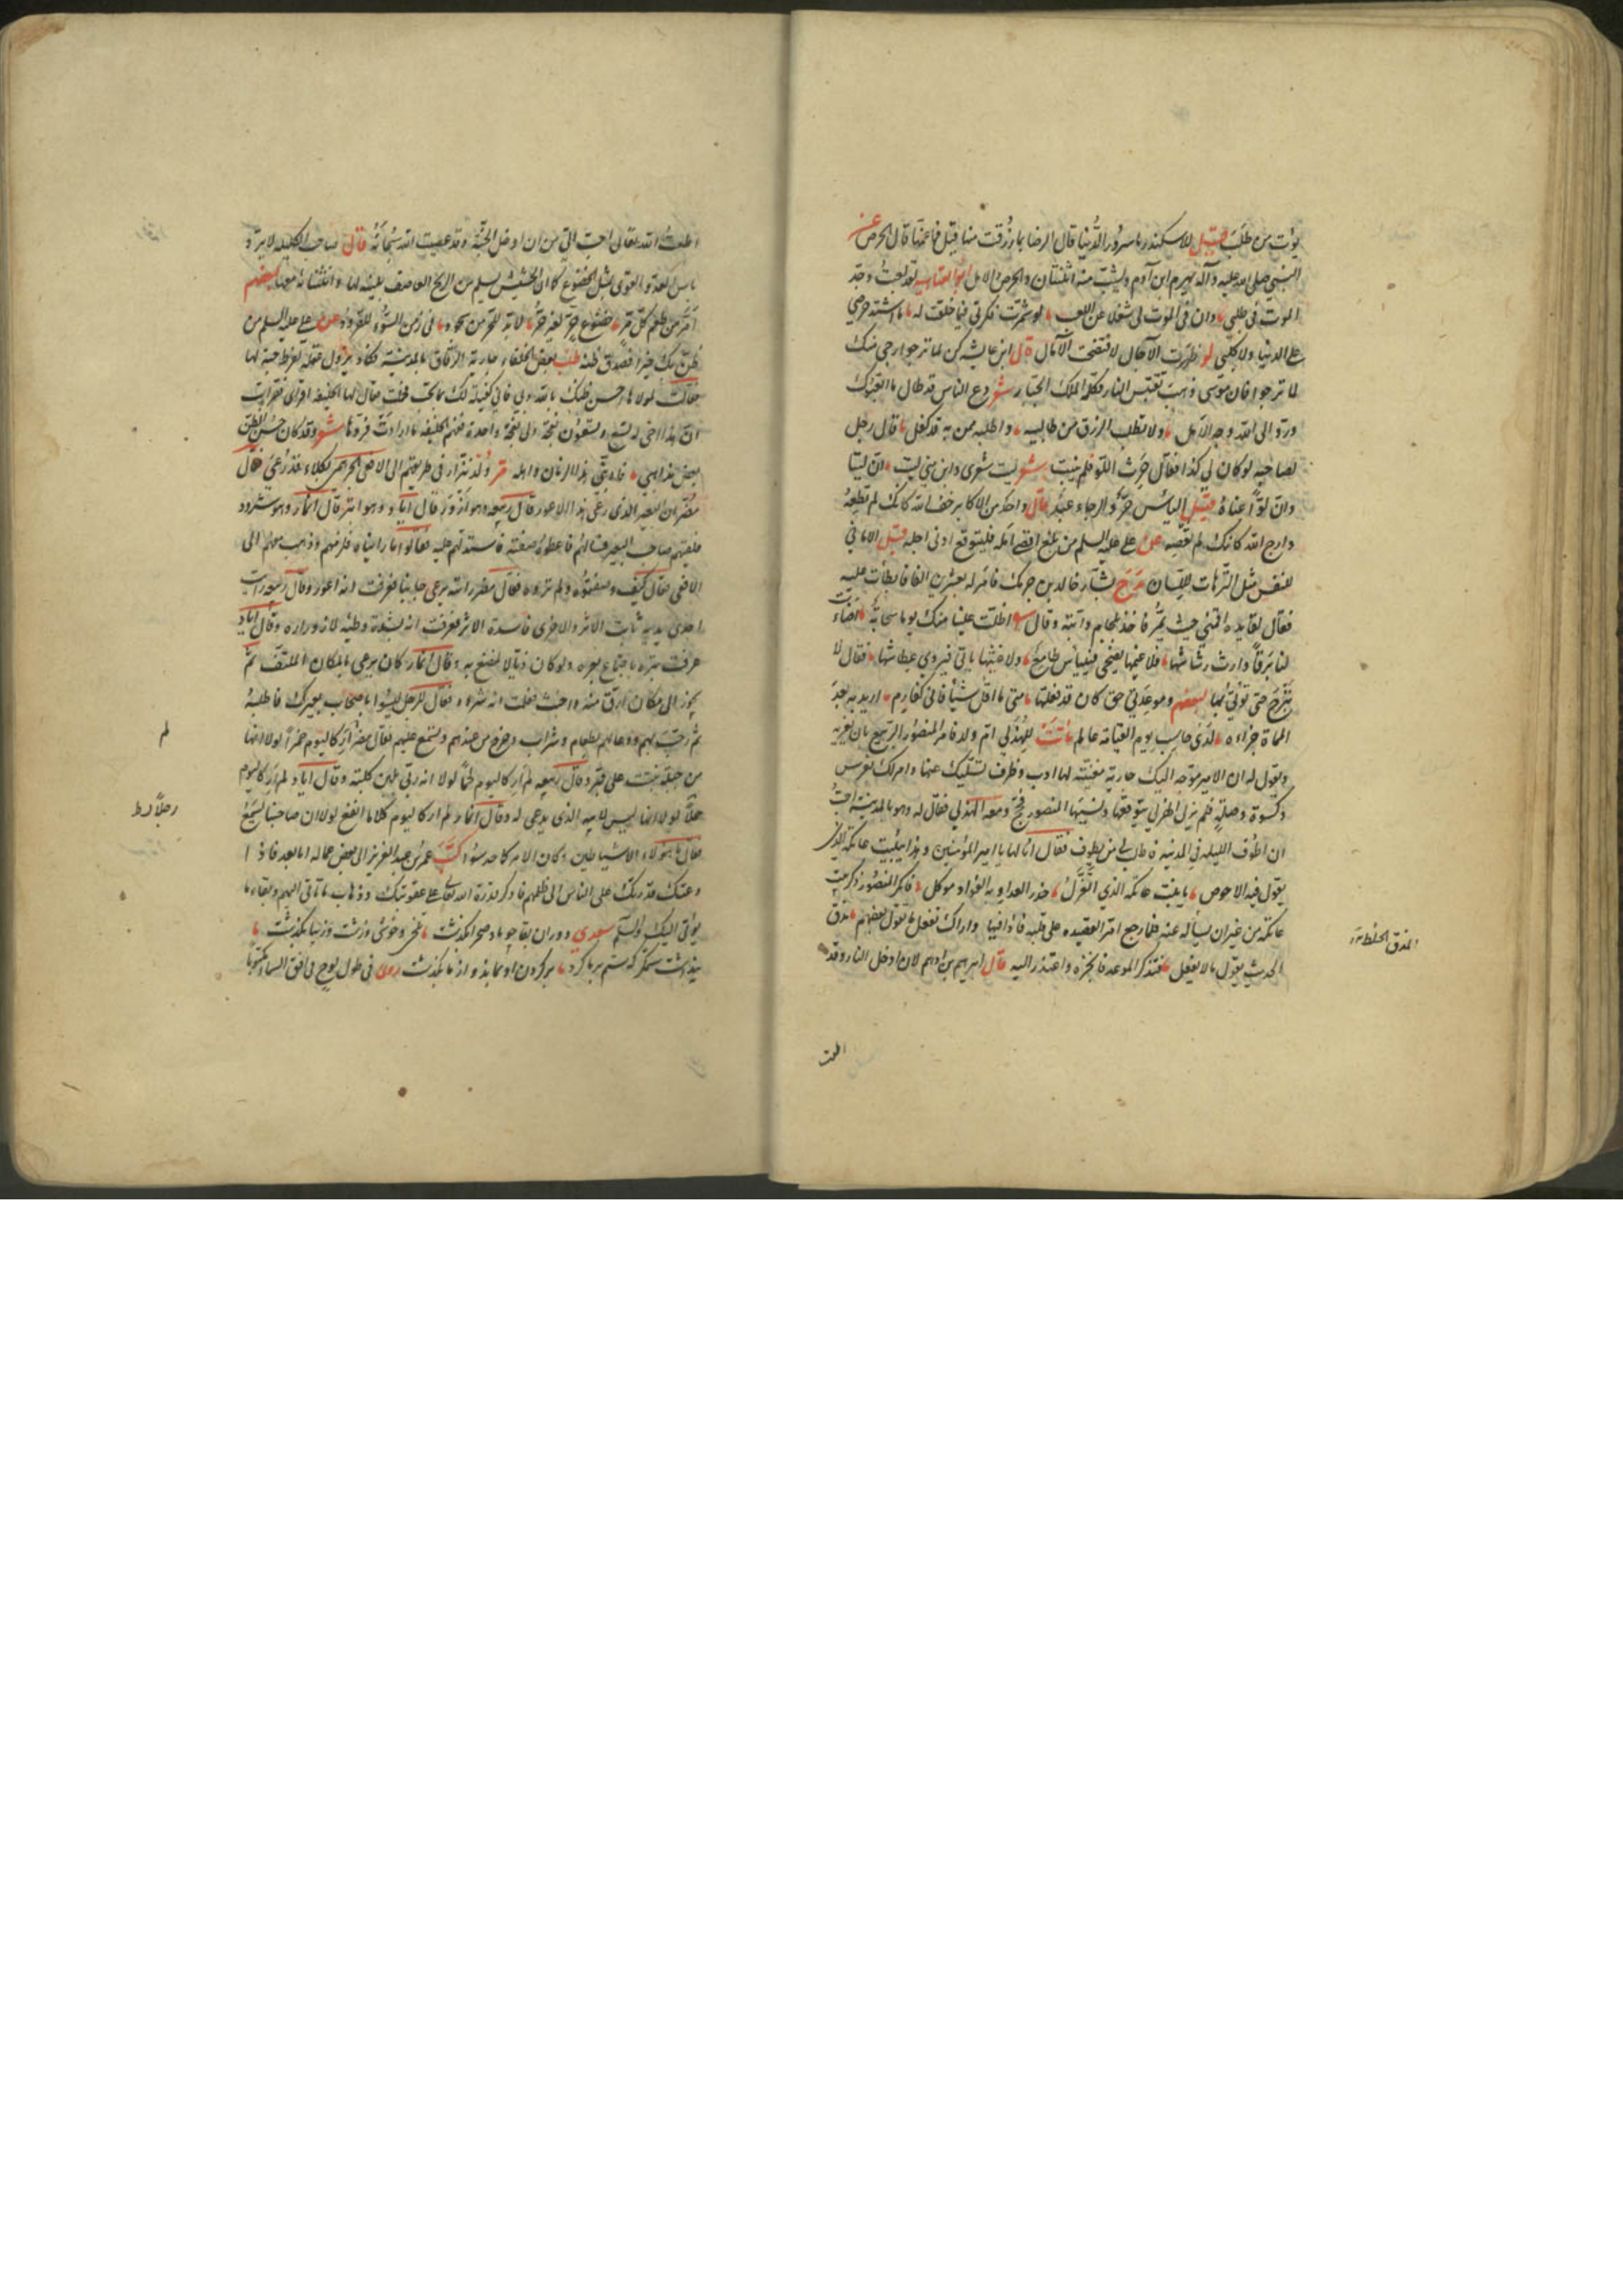 يؤت من طلب قيل للاسكندر ما سرور الدنيا قال الرضا بما رزقت منها قيل فما غمها قال الحرص عن
النبي صلى الله عليه وآله يهرم ابن آدم ويشب منه اثنتان الحرص والامل ابو العتاهيه لقد لعبت وجد
الموت في طلبي وان في الموت لي شغلا عن اللعب لو شمرت فكرتي فيما خلقت له ما اشتد حرصي
على الدنيا ولا كلبي لو ظهرت الآجال لافتضحت الآمال قال ابن عايشه كن لما ترجو ارجى منك
لما ترجو فان موسى ذهب يقتبس النار فكلمه الملك الجبار شعر دع الناس قد طال ما اتعبوك
ورد الى الله وجه الامل ولا تطلب الرزق من طالبيه واطلبه ممن به قد كفل قال رجل
لصاحبه لو كان لي كذا فقال حرث اللو فلم ينبت شعر ليت شعري واين مني ليت ان ليتا
وان لوا عناء قيل الياس حر والرجاء عبد قال واحد من الاكابر خف الله كانك لم تطعه
وارج الله كانك لم تعصه عن علي عليه السلم من بلغ اقصى امله فليتوقع ادنى اجله قيل الاماني
للنفس مثل الترهات للسان مدح بشار خالد بن برمك فامر له بعشرين الفا فابطأت عليه
فقال لقايده اقمني حيث يمر فاخذ بلجام دابته وقال اظلت علينا منك يوما سحابة اضاءت
لنا برقا وابطا رشاشها فلا غيمها يصحي فييأس طامع ولا غيثها ياتي فيروي عطاشها فقال لا
تبرح حتى تؤتى بها لبعضهم
الحماة جزاءه لدى حاسب يوم القيامة عالم
ويقول له ان الامير موجه اليك جارية مغنية لها ادب وظرف تسليك عنها وامر لك بفرس
وكسوة وصلة فلم يزل الهذلي يتوقعها ونسيها المنصور فحج ومعه الهذلي فقال له وهو بالمدينة احب
ان اطوف الليلة في المدينة فاطلب لي من يطوف فقال انا لها يا امير المؤمنين وهذا بيت عاتكة الذي
يقول فيه الاحوص يا بيت عاتكة الذي اتغزل حذر العدا وبه الفؤاد موكل فانكر المنصور ذكر بيت
عاتكة من غير ان يسأله عنه فلما رجع امر القصيده على قلبه فاذا فيها واراك تفعل ما تقول وبعضهم مذق
الحديث يقول ما لا يفعل فتذكر الموعد فانجزه واعتذر اليه قال ابراهيم بن ادهم لان ادخل النار وقد
المذق الخلط
اطعت الله تعالى احب الي من ان ادخل الجنة وقد عصيت الله سبحانه قال صاحب الكليله لا يرد
باس العدو القوي مثل الخضوع كما ان الحشيش يسلم من الريح العاصف بلينه لها وانثنائه معها لبعضهم
امر من طعم كل مر خضوع حر لغير حر
ظن بك خيرا فصدق ظنه طلب بعض الخلفاء جارية
فقالت لمولاها احسن ظنك بالله وبي فاني كفيلة لك بما تحب فحملت فقال لها الخليفه اقرأي فقرأت
ان هذا اخي له تسع وتسعون نعجة ولي نعجة واحدة ففهم الخليفه ما ارادت فردها شعر وقد كان حسن الظن
بعض مذاهبي فادبني هذا الزمان واهله
مضر ان البعير الذي رعى هذا لاعور قال ربيعه وهو ازور قال اياد وهو ابتر قال انمار وهو شرود
فلقيهم صاحب البعير فسالهم فاعطوه صفته
الافعى فقال كيف وصفتموه ولم تروه فقال مضر رايته يرعى جانبا فعرفت انه اعور وقال ربيعه رايت
احدى يديه ثابت الاثر والاخرى فاسدة الاثر فعرفت انه لشدة وطئه لازوراره وقال اياد
عرفت بتره باجتماع بعره ولو كان ذيالا لمصع به وقال انمار كان يرعى بالمكان الملتف ثم
يجوز الى مكان ارق منه واخبث فعلمت انه شرود فقال للرجل ليسوا باصحاب بعيرك فاطلبه
ثم رحب بهم ودعا لهم بطعام وشراب وخرج من عندهم وتسمع عليهم فقال مضر لم ار كاليوم خمرا لولا انها
من حبلة نبتت على قبر وقال ربيعه لم ار كاليوم لحما لولا انه ربي بلبن كلبة وقال اياد لم ار كاليوم
رجلا لولا انه ليس لابيه الذي يدعى له وقال انمار لم ار كاليوم كلاما انفع لولا ان صاحبنا يسمع
فقال ما هولاء الا شياطين وكان الامر كما حدسوا كتب عمر بن عبد العزيز الى بعض عماله اما بعد فاذا
دعتك قدرتك على الناس الى ظلمهم فاذكر قدرة الله تعالى على عقوبتك وذهاب ما تاتي اليهم وبقاء ما
يؤتى اليك والسلم سعدي دوران بقا چو باد صحرا بگذشت تلخي وخوشي وزشت وزيبا بگذشت
پنداشت ستمگر كه ستم بر ما كرد بر گردن او بماند و از ما بگذشت
لم
رجلا